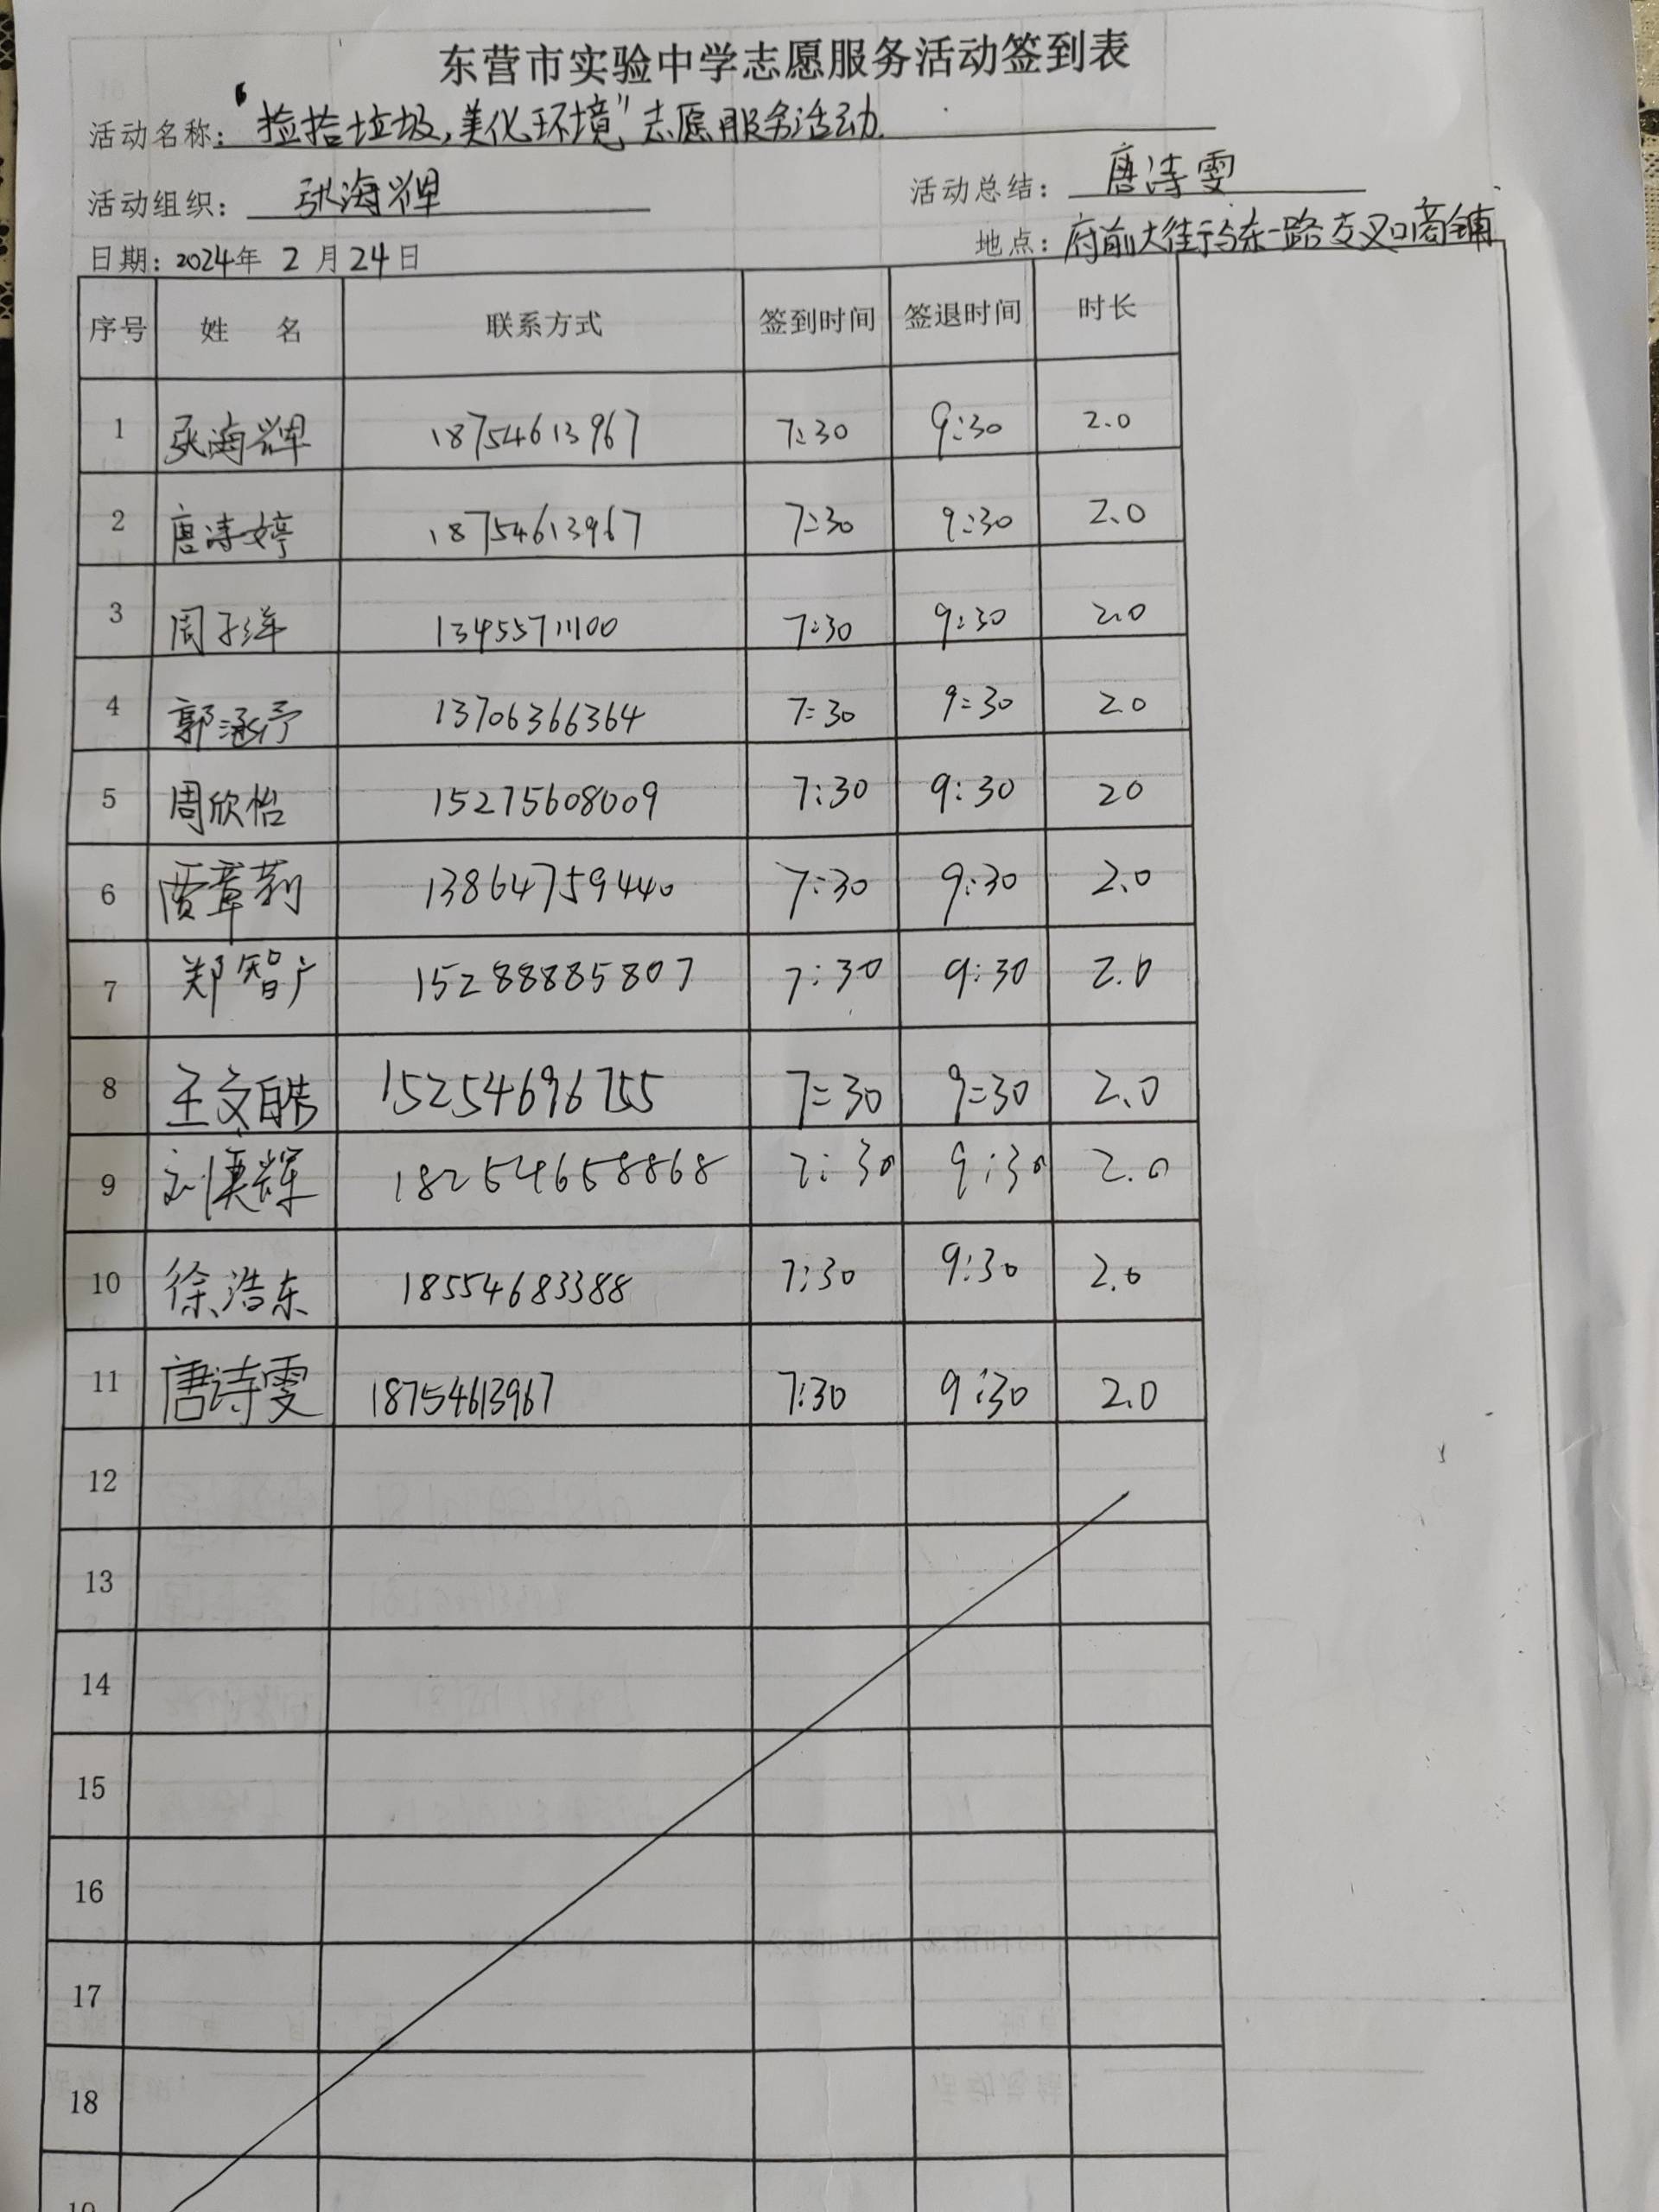 东营市实验中学志愿服务活动签到表
活动名称："捡拾垃圾,美化环境"志愿服务活动.
活动组织：张海辉 活动总结：唐诗雯
日期：2024年 2 月 24 日 地点：府前大街与东一路交叉口商铺
序号 姓 名 联系方式 签到时间 签退时间 时长
1 张海辉 18754613967 7:30 9:30 2.0
2 唐诗婷 18754613967 7:30 9:30 2.0
3 周子洋 13455711100 7:30 9:30 2.0
4 郭涵予 13706366364 7:30 9:30 2.0
5 周欣怡 15275608009 7:30 9:30 20
6 贾章莉 13864759440 7:30 9:30 2.0
7 郑智广 15288885807 7:30 9:30 2.0
8 王文皓 15254696755 7:30 9:30 2.0
9 刘 辉 18254658868 7:30 9:30 2.0
10 徐浩东 18554683388 7:30 9:30 2.0
11 唐诗雯 18754613967 7:30 9:30 2.0
12
13
14
15
16
17
18